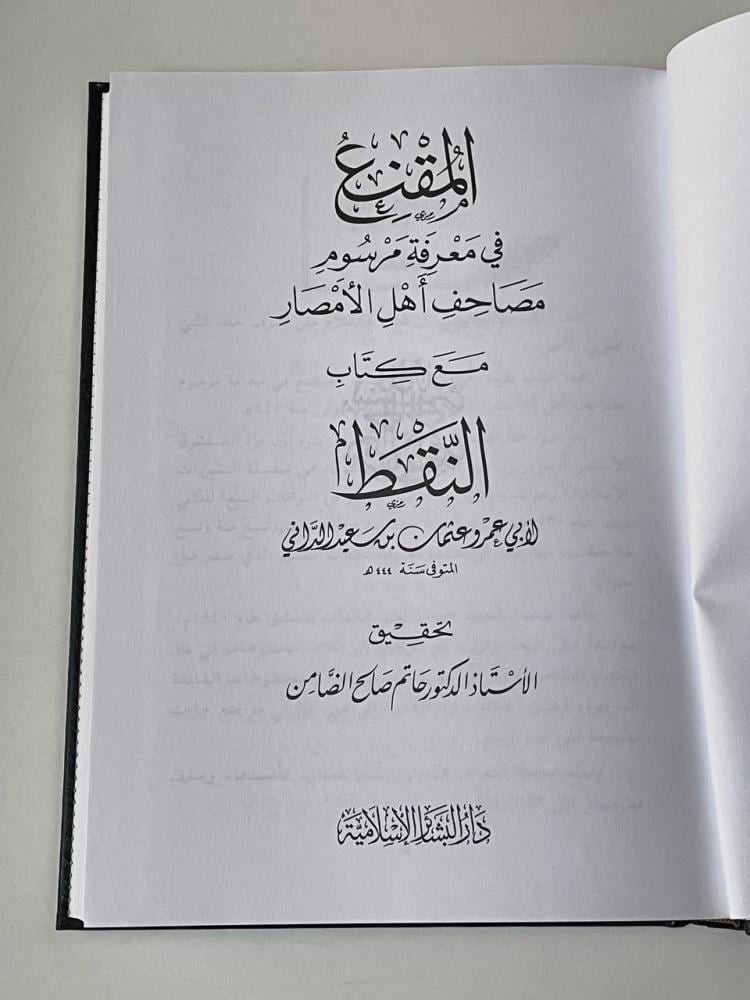 المُقْنِع
في مَعْرِفَةِ مَرْسُومِ
مَصَاحِفِ أَهْلِ الأَمْصَارِ
مَعَ كِتَابِ
النَّقْط
لأبي عمرو عثمان بن سعيد الدَّاني
المتوفى سَنَة ٤٤٤ هـ
تحقيق
الأستاذ الدكتور حاتم صالح الضَّامن
دَارُ البَشَائِرِ الإِسْلَامِيَّة